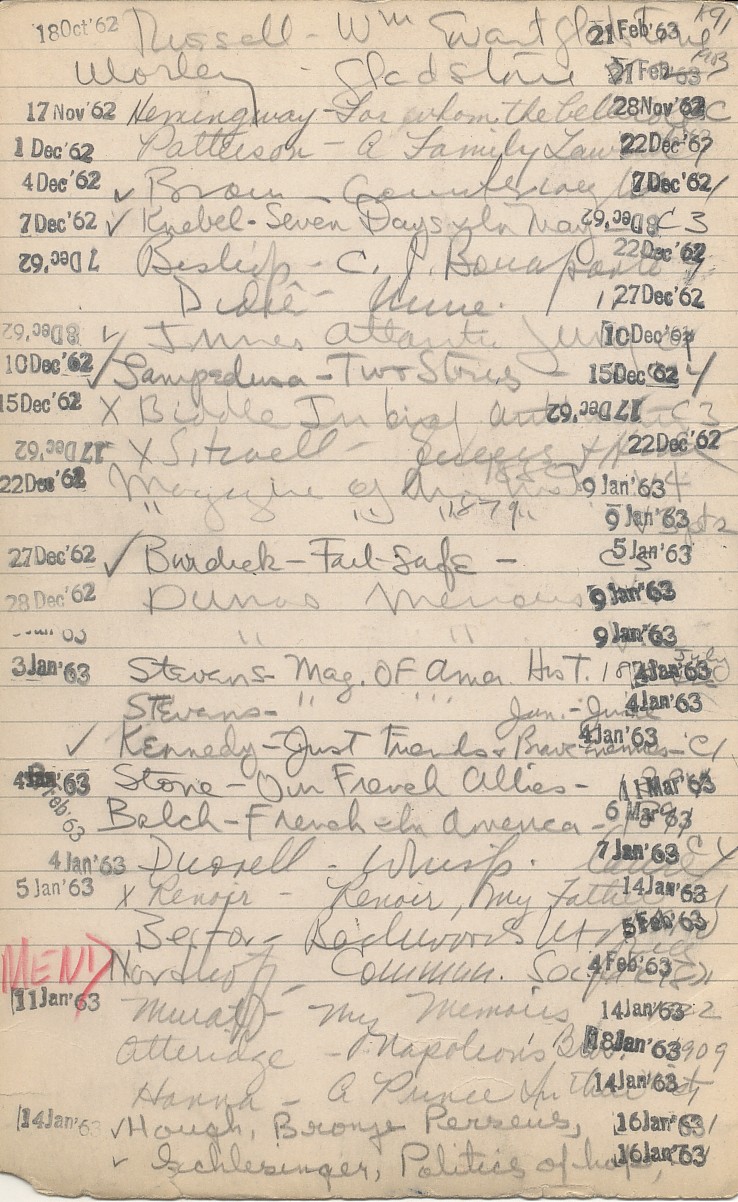 18 Oct '62 Russell - Wm Ewart Gladstone 21 Feb '63
Morley - Gladstone 21 Feb '63 1903
17 Nov '62 Hemingway - For whom the bell 28 Nov '62 C
1 Dec '62 Patterson - A Family Lawyer 22 Dec '62
4 Dec '62 ✓ Brown 7 Dec '62
7 Dec '62 ✓ Knebel - Seven Days In May 8 Dec '62 C3
7 Dec '62 Bishop - C. J. Bonaparte 22 Dec '62
Didié - Nume. 27 Dec '62
8 Dec '62 ✓ Innes Atlantic 10 Dec '62
10 Dec '62 ✓ Lampedusa - Two Stories - 15 Dec '62
15 Dec '62 X Biddle 17 Dec '62 C3
17 Dec '62 X Sitwell - 22 Dec '62
22 Dec '62 Magazine of Am. Hist 9 Jan '63
" " " 1879 " 9 Jan '63
27 Dec '62 ✓ Burdick - Fail-Safe - 5 Jan '63
28 Dec '62 Dumas Memoirs 9 Jan '63
" " 9 Jan '63
3 Jan '63 Stevens - Mag. OF Amer. Hist. 4 Jan '63
Stevens - " " " Jan. - June 4 Jan '63
✓ Kennedy - Just Friends & Brave Enemies - C1 4 Jan '63
4 Jan '63 Stone - Our French Allies - 11 Mar '63
Feb '63 Balch - French In America - 6 Mar '63
4 Jan '63 Durrell - Whisp. 7 Jan '63
5 Jan '63 X Renoir - Renoir, My Father 14 Jan '63
Backwoods Utopias 5 Feb '63
MEND Nordhoff - Commun. Soc. 4 Feb '63
11 Jan '63 Murat - My Memoirs 14 Jan '63
Atteridge - Napoleon's Bro. 18 Jan '63 1909
Hanna - A Prince In Their 14 Jan '63
14 Jan '63 ✓ Hough, Bronze Perseus, 16 Jan '63
✓ Schlesinger, Politics of hope, 16 Jan '63